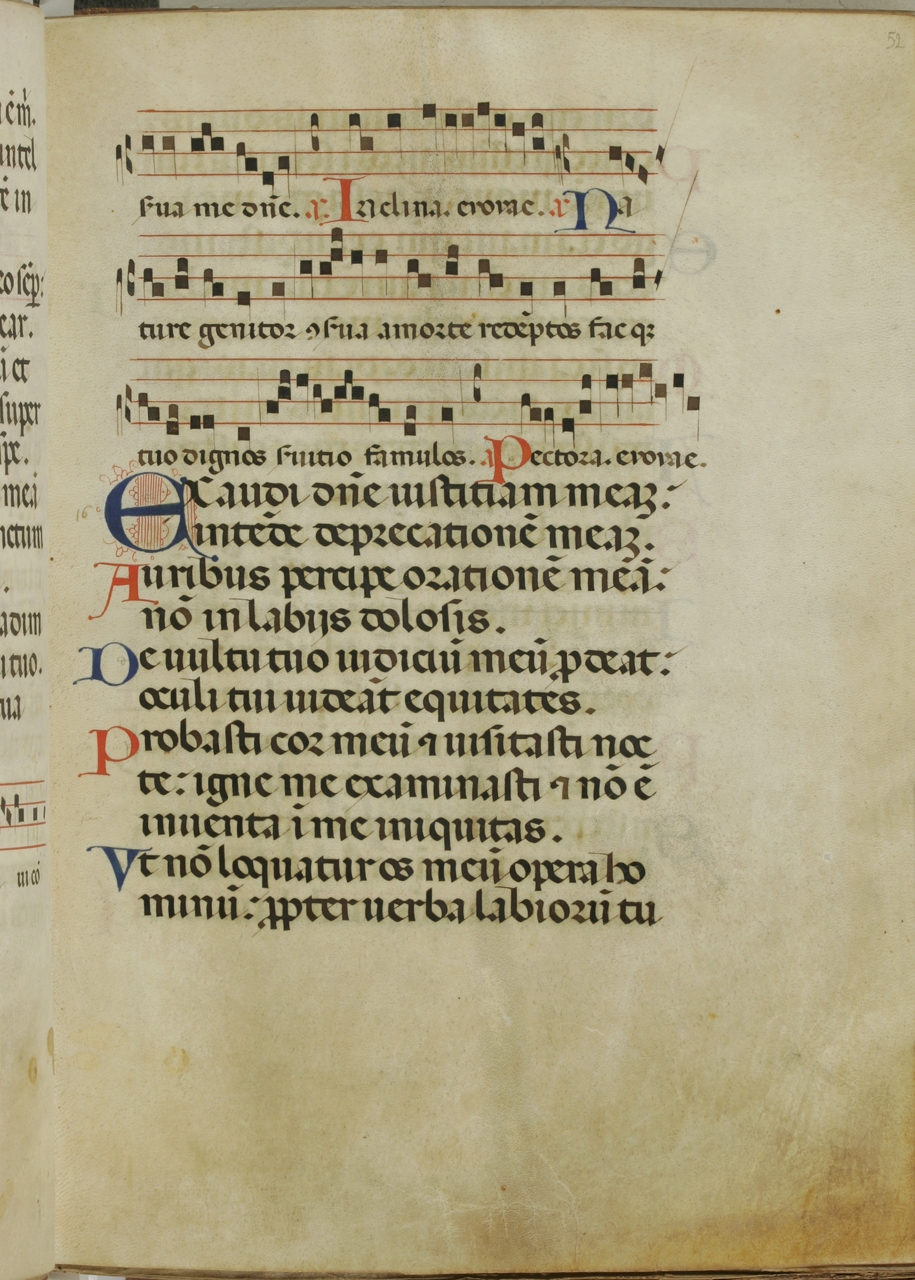 52
sua me dn̄e. a. Inclina. evovae. a. Na
ture genitor ɔsua a morte redēptos fac qz
tuo dignos suitio famulos. a Pectora. evovae.
16
Exaudi dn̄e iustitiam meaz:
intēde deprecationē meaz.
Auribus percipe orationē mēā:
nō in labijs dolosis.
De uultu tuo iudiciū meū ꝓdeat:
oculi tui uideāt equitates.
Probasti cor meū ⁊ uisitasti noc
te: igne me examinasti ⁊ nō ē
inuenta ī me iniquitas.
Vt nō loquatur os meū opera ho
minū: ꝓpter uerba labiorū tu